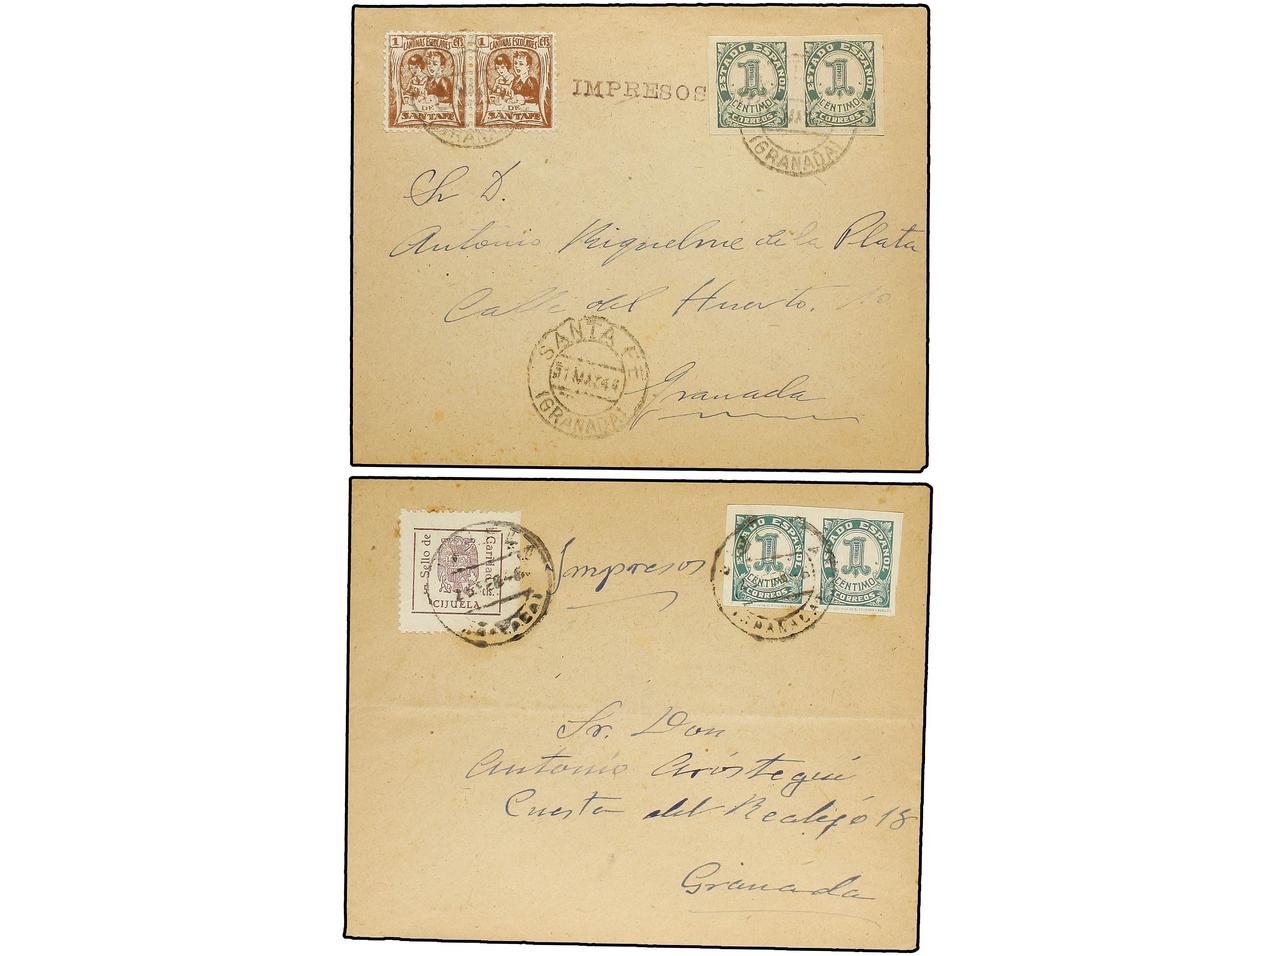 1 CANTINAS ESCOLARES CTS.
DE
SANTAFE
1 CANTINAS ESCOLARES CTS.
DE
SANTAFE
IMPRESOS
ESTADO ESPAÑOL
1
CENTIMO
CORREOS
ESTADO ESPAÑOL
1
CENTIMO
CORREOS
(GRANADA)
Sr. D.
Antonio Riquelme de la Plata
Calle del Huerto. 10
SANTA FE
(GRANADA)
Granada
Sello de
CIJUELA
Impresos
ESTADO ESPAÑOL
1
CENTIMO
CORREOS
ESTADO ESPAÑOL
1
CENTIMO
CORREOS
Sr. Don
Antonio Aróstegui
Cuesta del Realejo 18
Granada